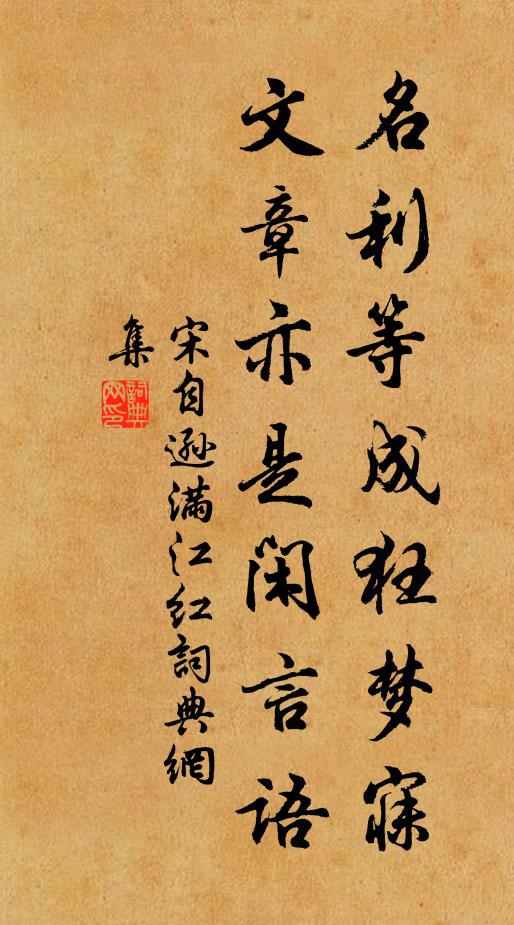 名利等成狂梦寐
文章亦是闲言语
宋自逊满江红詞典網
集
詞典
网印